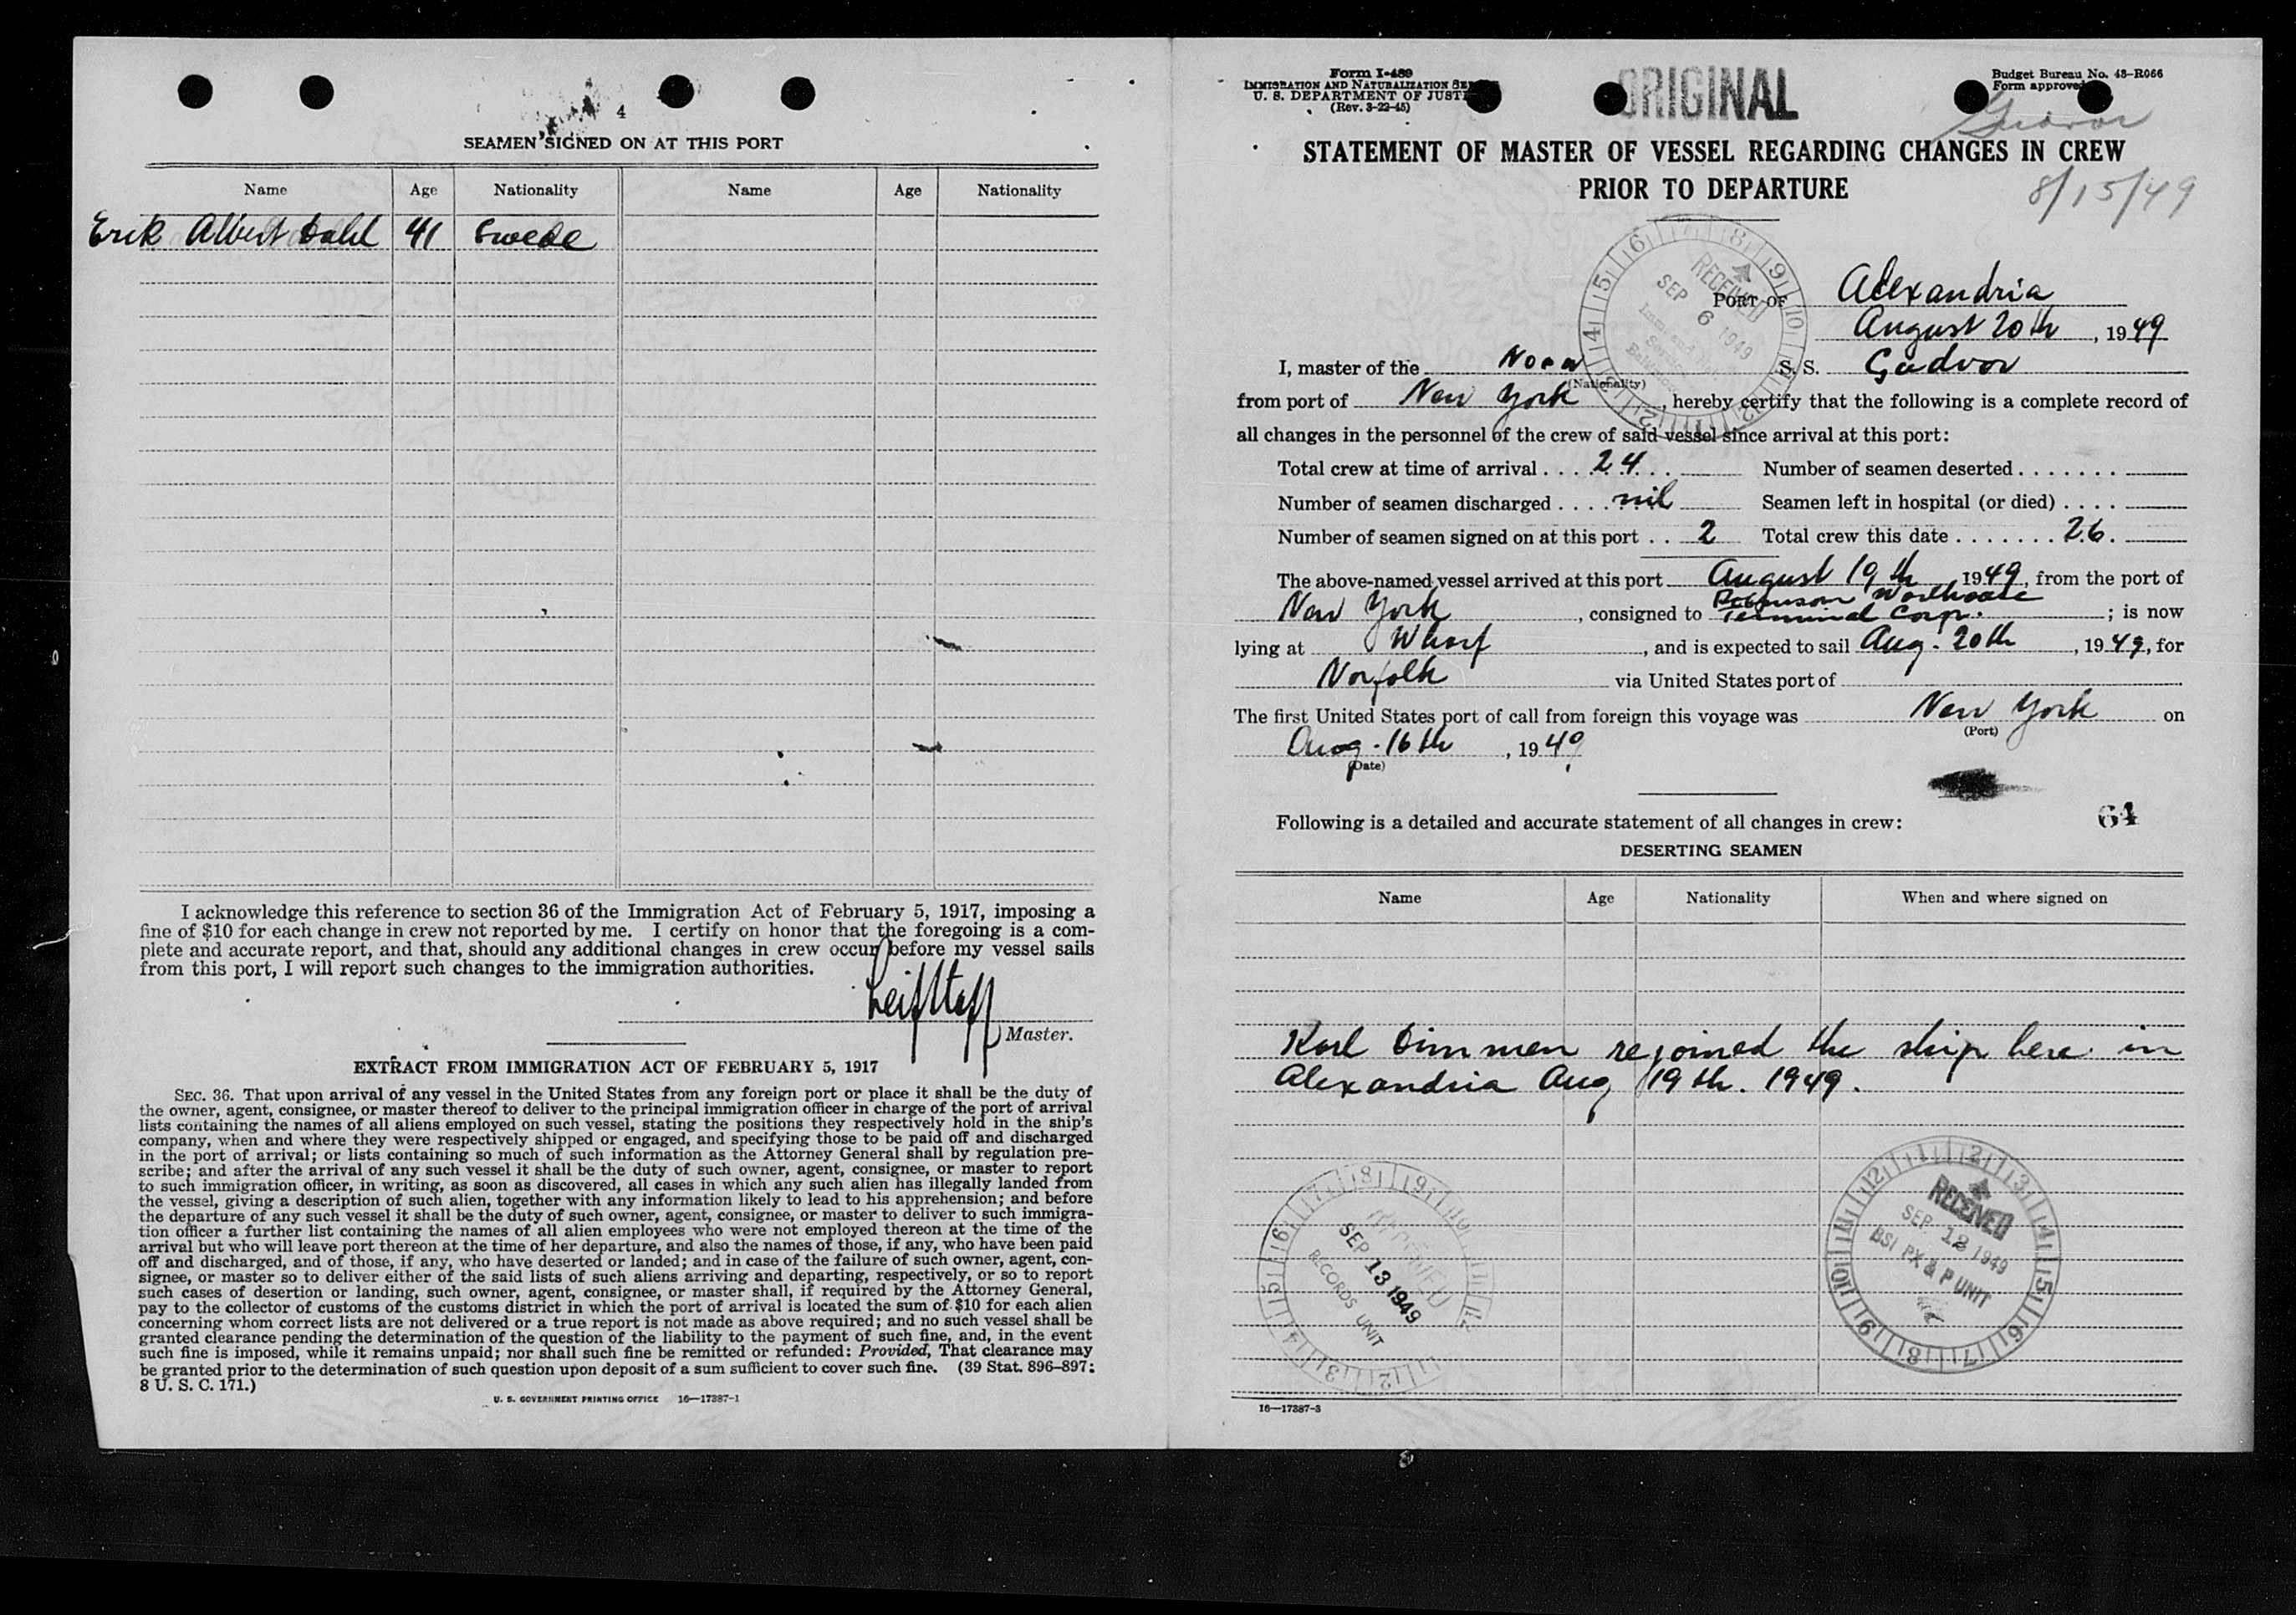 4
SEAMEN SIGNED ON AT THIS PORT
Name Age Nationality Name Age Nationality
Erik Albert Dahl 41 Swede
I acknowledge this reference to section 36 of the Immigration Act of February 5, 1917, imposing a
fine of $10 for each change in crew not reported by me. I certify on honor that the foregoing is a com-
plete and accurate report, and that, should any additional changes in crew occur before my vessel sails
from this port, I will report such changes to the immigration authorities.
Master.
EXTRACT FROM IMMIGRATION ACT OF FEBRUARY 5, 1917
SEC. 36. That upon arrival of any vessel in the United States from any foreign port or place it shall be the duty of
the owner, agent, consignee, or master thereof to deliver to the principal immigration officer in charge of the port of arrival
lists containing the names of all aliens employed on such vessel, stating the positions they respectively hold in the ship's
company, when and where they were respectively shipped or engaged, and specifying those to be paid off and discharged
in the port of arrival; or lists containing so much of such information as the Attorney General shall by regulation pre-
scribe; and after the arrival of any such vessel it shall be the duty of such owner, agent, consignee, or master to report
to such immigration officer, in writing, as soon as discovered, all cases in which any such alien has illegally landed from
the vessel, giving a description of such alien, together with any information likely to lead to his apprehension; and before
the departure of any such vessel it shall be the duty of such owner, agent, consignee, or master to deliver to such immigra-
tion officer a further list containing the names of all alien employees who were not employed thereon at the time of the
arrival but who will leave port thereon at the time of her departure, and also the names of those, if any, who have been paid
off and discharged, and of those, if any, who have deserted or landed; and in case of the failure of such owner, agent, con-
signee, or master so to deliver either of the said lists of such aliens arriving and departing, respectively, or so to report
such cases of desertion or landing, such owner, agent, consignee, or master shall, if required by the Attorney General,
pay to the collector of customs of the customs district in which the port of arrival is located the sum of $10 for each alien
concerning whom correct lists are not delivered or a true report is not made as above required; and no such vessel shall be
granted clearance pending the determination of the question of the liability to the payment of such fine, and, in the event
such fine is imposed, while it remains unpaid; nor shall such fine be remitted or refunded: Provided, That clearance may
be granted prior to the determination of such question upon deposit of a sum sufficient to cover such fine. (39 Stat. 896-897;
8 U. S. C. 171.)
U. S. GOVERNMENT PRINTING OFFICE 16—17387-1
Form I-489
IMMIGRATION AND NATURALIZATION SE
U. S. DEPARTMENT OF JUSTI
(Rev. 3-22-45)
ORIGINAL
Budget Bureau No. 43-R066
Form approved
STATEMENT OF MASTER OF VESSEL REGARDING CHANGES IN CREW
PRIOR TO DEPARTURE
8/15/49
RECEIVED
SEP 6 1949
PORT OF Alexandria
August 20th, 1949
I, master of the S. S. Gudvor
(Nationality)
from port of New York, hereby certify that the following is a complete record of
all changes in the personnel of the crew of said vessel since arrival at this port:
Total crew at time of arrival . . . 24 . . Number of seamen deserted . . . . . . .
Number of seamen discharged . . . . nil Seamen left in hospital (or died) . . . .
Number of seamen signed on at this port . . 2 Total crew this date . . . . . . . 26.
The above-named vessel arrived at this port August 19th, 1949, from the port of
New York, consigned to Robinson Terminal Corp.; is now
lying at Wharf, and is expected to sail Aug. 20th, 1949, for
Norfolk via United States port of
The first United States port of call from foreign this voyage was New York on
(Port)
Aug. 16th, 1949
(Date)
Following is a detailed and accurate statement of all changes in crew: 64
DESERTING SEAMEN
Name Age Nationality When and where signed on
Karl Dimmen rejoined the ship here in
Alexandria Aug 19th. 1949.
RECEIVED
SEP 13 1949
RECORDS UNIT
RECEIVED
SEP 12 1949
BSI PX & P UNIT
16—17387-3